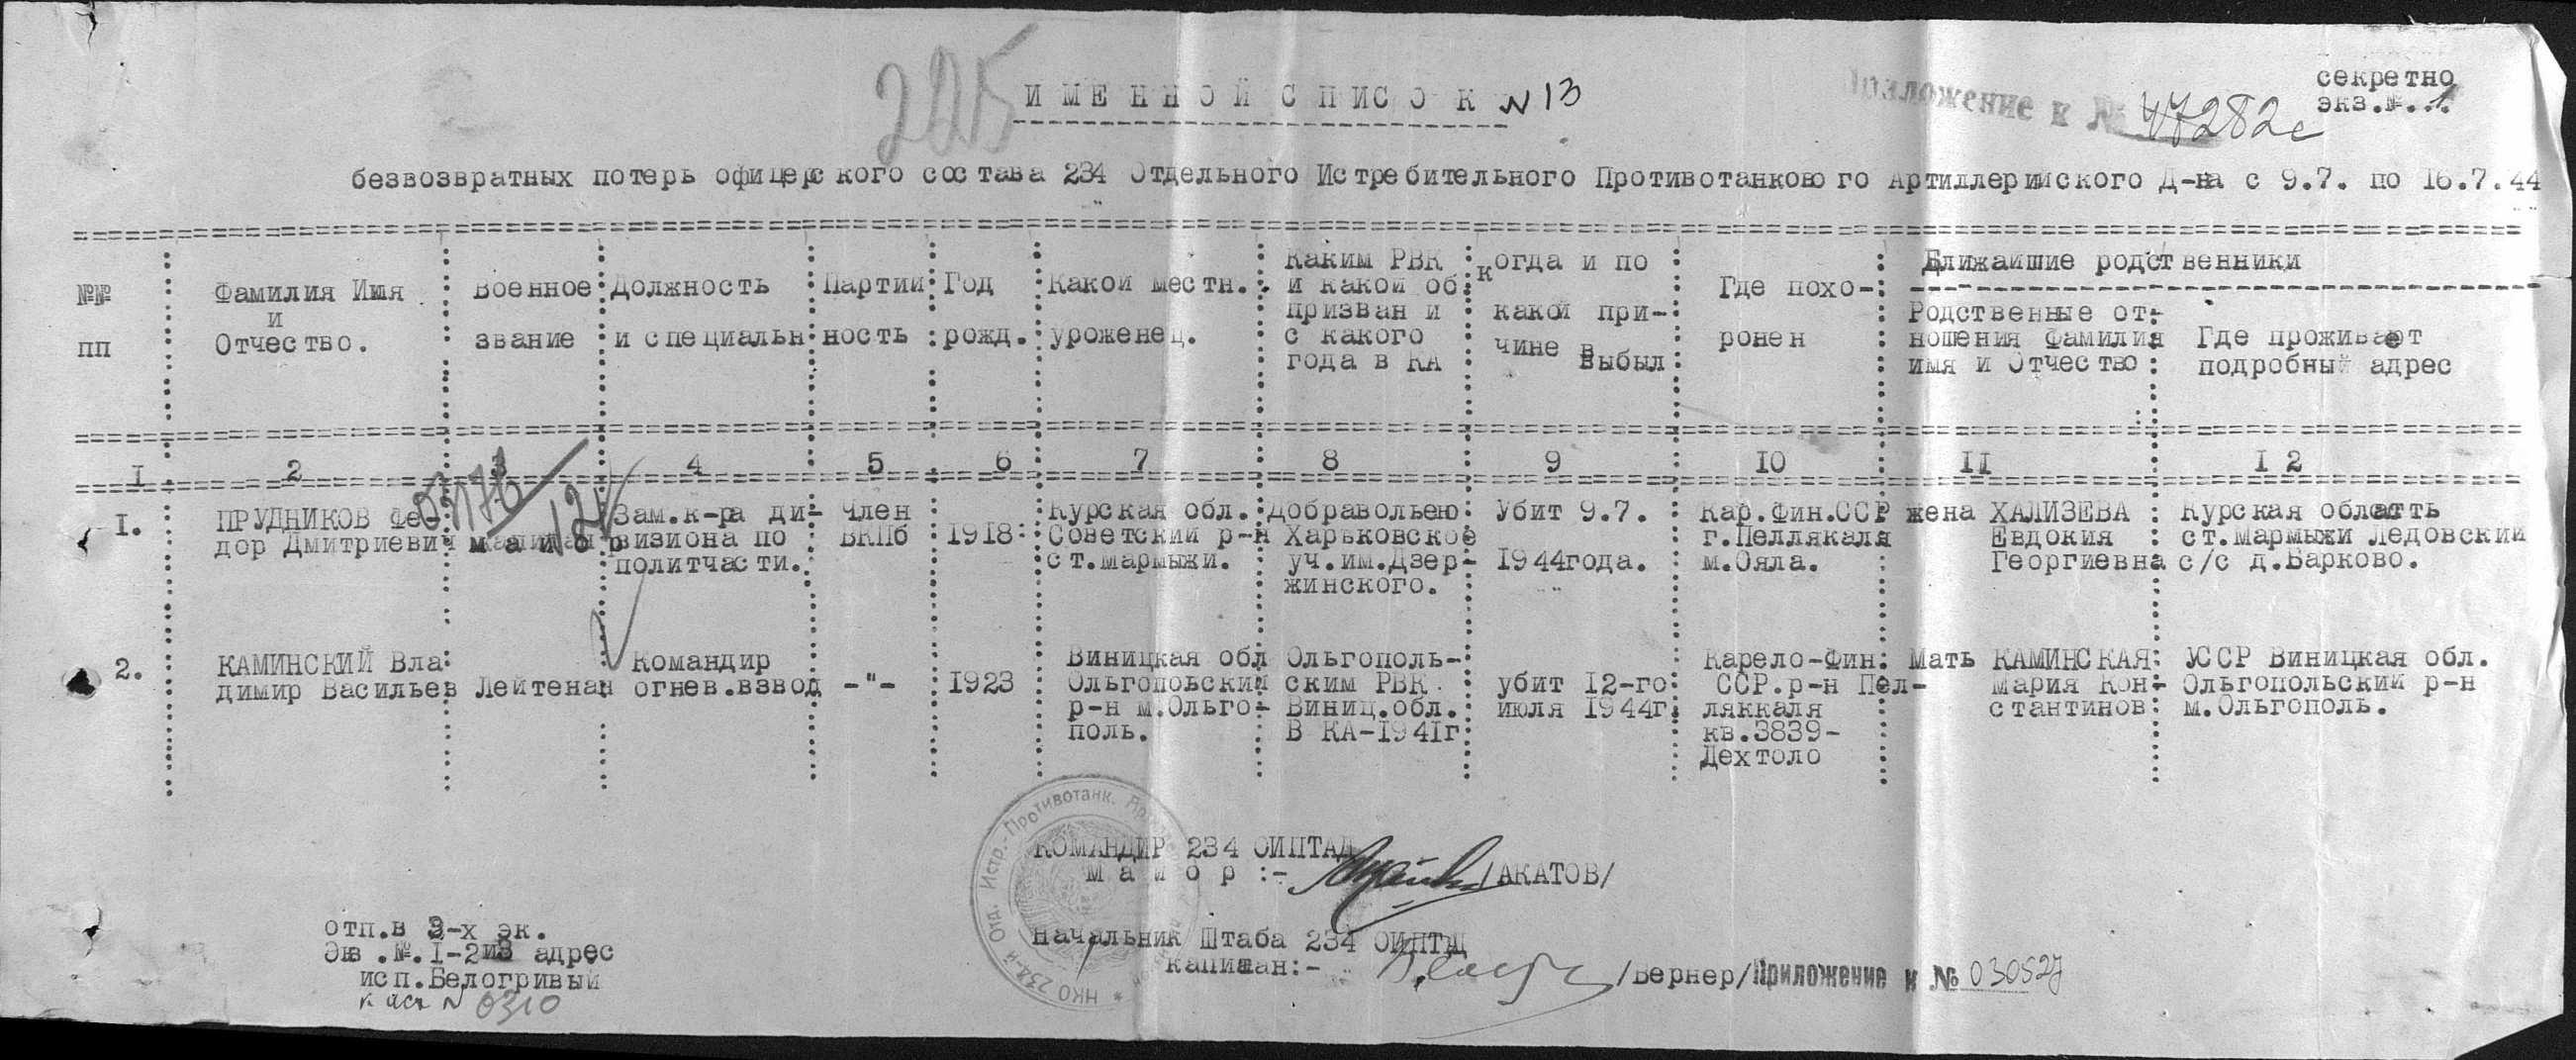 225
ИМЕННОЙ СПИСОК N 13
Приложение к № 47282с
секретно
экз.№.1.
безвозвратных потерь офицерского состава 234 Отдельного Истребительного Противотанкового Артиллерийского Д-на с 9.7. по 16.7.44
№№ пп
Фамилия Имя
и
Отчество.
Военное
звание
Должность
и специальн
Партий
ность
Год
рожд.
Какой местн.
уроженец.
Каким РВК
и какой об.
призван и
с какого
года в КА
когда и по
какой при-
чине выбыл
Где похо-
ронен
Ближайшие родственники
Родственные от-
ношения Фамилия
имя и Отчество
Где проживает
подробный адрес
I 2 3 4 5 6 7 8 9 IO II I 2
I.
ПРУДНИКОВ Фео-
дор Дмитриевич
майор
Зам.к-ра ди-
визиона по
политчасти.
Член
ВКПб
1918
Курская обл.
Советский р-н
ст.мармыжи.
Добравольею
Харьковское
уч.им.Дзер-
жинского.
Убит 9.7.
1944года.
Кар.Фин.ССР
г.Пеллякаля
м.Ояла.
жена ХАЛИЗЕВА
Евдокия
Георгиевна
Курская область
ст.мармыжи Ледовский
с/с д.Барково.
2.
КАМИНСКИЙ Вла
димир Васильев
Лейтенан
Командир
огнев.взвод
-"-
1923
Виницкая обл
Ольгопольский
р-н м.Ольго-
поль.
Ольгополь-
ским РВК
Виниц.обл.
В КА-1941г
убит 12-го
июля 1944г.
Карело-Фин.
ССР.р-н Пел-
ляккаля
кв.3839-
Дехтоло
Мать КАМИНСКАЯ
Мария Кон-
стантинов
УССР Виницкая обл.
Ольгопольский р-н
м.Ольгополь.
КОМАНДИР 234 ОИПТАД
майор :- /АКАТОВ/
Начальник Штаба 234 ОИПТД
капитан:- /Вернер/
Приложение к № 030527
НКО 234-й Отд. Истр.-Противотанк.
отп.в 3-х эк.
Экз.№.I-2 адрес
исп.Белогривый
0310